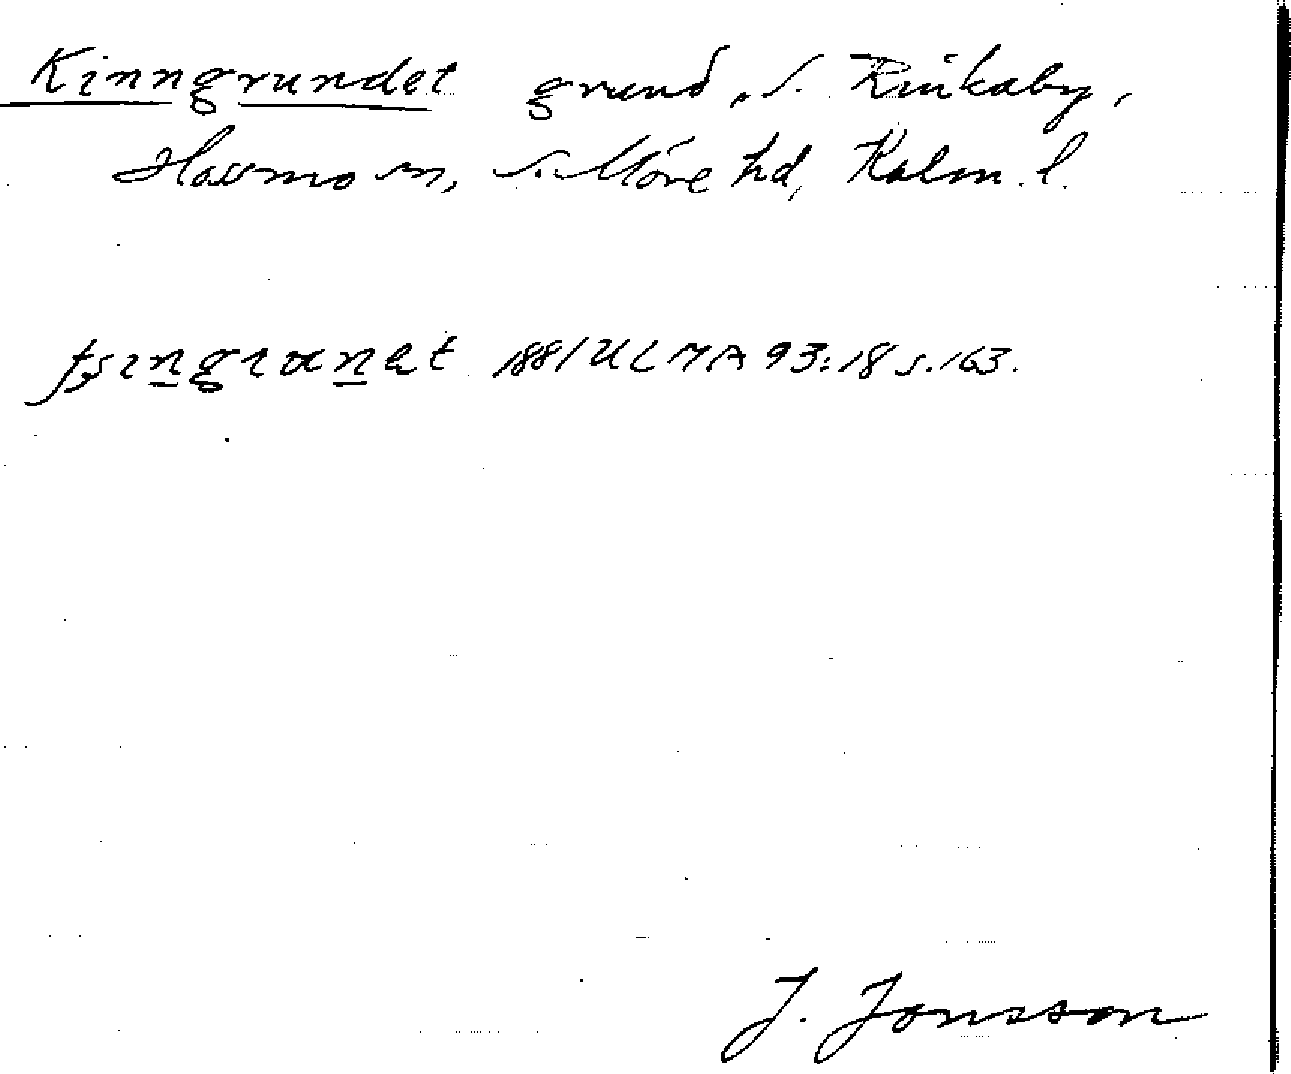 Kinngrundet grund, S. Rinkaby,
Hassmo sn, S. Möre hd, Kalm. l.
1881 ULMA 93:18 s. 163.
J. Jonsson